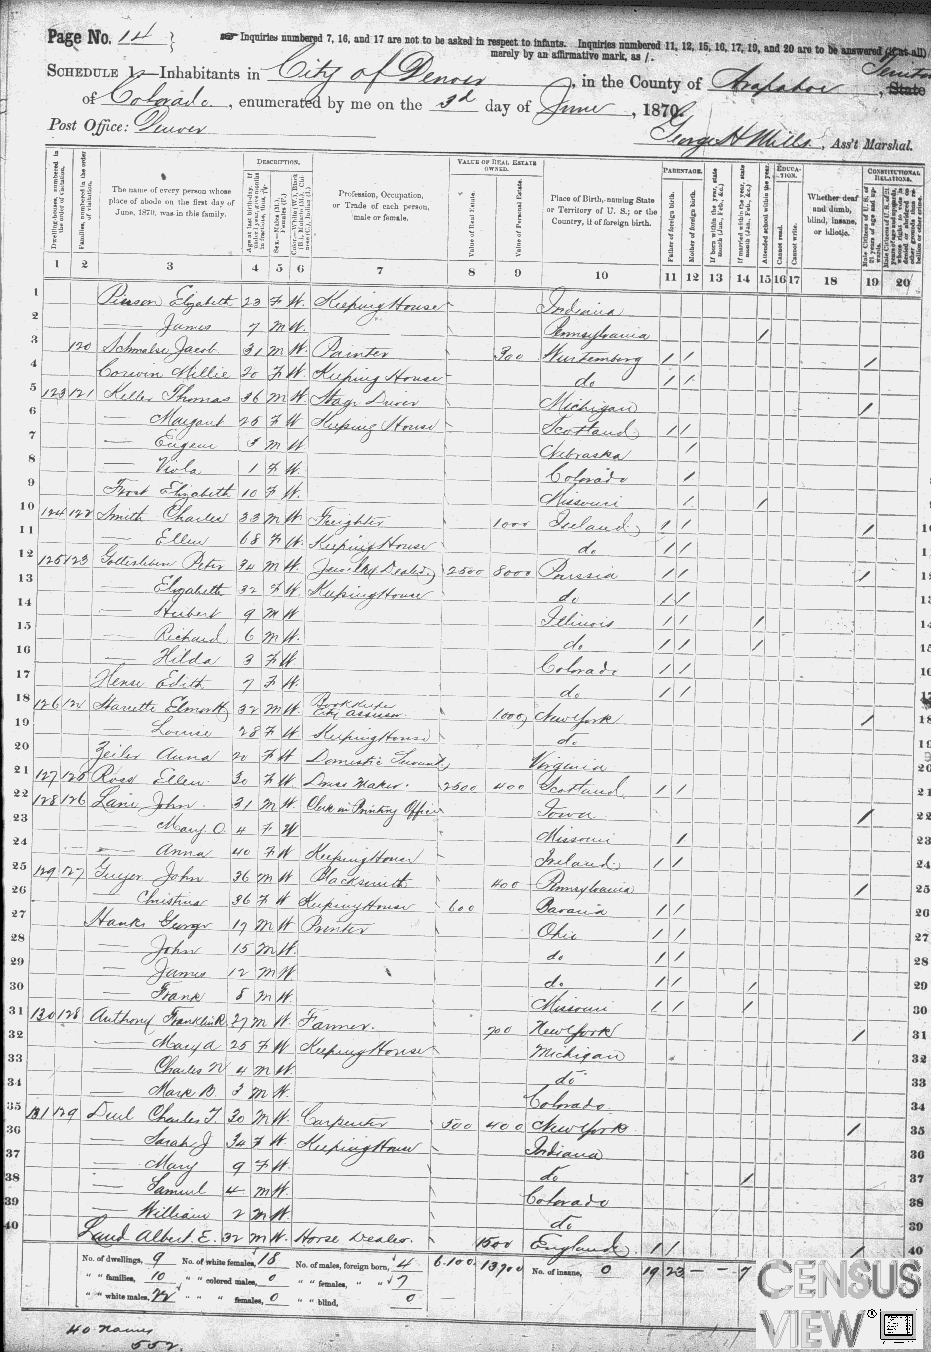 Page No. 14
Inquiries numbered 7, 16, and 17 are not to be asked in respect to infants. Inquiries numbered 11, 12, 15, 16, 17, 19, and 20 are to be answered (if at all)
merely by an affirmative mark, as /.
Territory
SCHEDULE 1.—Inhabitants in City of Denver, in the County of Arapahoe, State
of Colorado, enumerated by me on the 3d day of June, 1870.
Post Office: Denver
George H Mills, Ass't Marshal.
Dwelling-houses, numbered in the order of visitation.
Families, numbered in the order of visitation.
The name of every person whose place of abode on the first day of June, 1870, was in this family.
DESCRIPTION.
Age at last birth-day.
Sex.—Males (M.), Females (F.)
Profession, Occupation, or Trade of each person, male or female.
VALUE OF REAL ESTATE OWNED.
Value of Real Estate.
Value of Personal Estate.
Place of Birth, naming State or Territory of U. S.; or the Country, if of foreign birth.
PARENTAGE.
Father of foreign birth.
Mother of foreign birth.
If born within the year, state month (Jan. Feb., &c.)
If married within the year, state month (Jan. Feb., &c.)
Attended school within the year.
EDUCATION.
Cannot read.
Cannot write.
Whether deaf and dumb, blind, insane, or idiotic.
CONSTITUTIONAL RELATIONS.
1 2 3 4 5 6 7 8 9 10 11 12 13 14 15 16 17 18 19 20
1 Pierson Elizabeth 23 F W. Keeping House Indiana
2 — James 7 M W. Pennsylvania /
3 120 Schmalse Jacob 31 M W. Painter 300 Wurtemberg / / /
4 Corwin Millie 20 F W. Keeping House do / /
5 123 121 Keller Thomas 36 M W. Stage Driver Michigan /
6 — Margaret 25 F W Keeping House Scotland / /
7 — Eugene M W Nebraska /
8 — Viola 1 F W. Colorado /
9 Frost Elizabeth 10 F W. Missouri / /
10 124 122 Smith Charles 33 M W. Freighter 1000 Ireland / / /
11 — Ellen 68 F W. Keeping House do / /
12 125 123 Gottesleben Peter 34 M W. Jewelry Dealer 2500 8000 Prussia / / /
13 — Elizabeth 32 F W. Keeping House do / /
14 — Hubert 9 M W Illinois / / /
15 — Richard 6 M W. do / / /
16 — Hilda 3 F W. Colorado / /
17 Hense Edith 7 F W. do / /
18 126 12 Harriette 32 M W. Book Keeper 1000 New York /
19 — Louise 28 F W. Keeping House do
20 Zeiler Anna 20 F W Domestic Servant Virginia
21 127 125 Ross Ellen 30 F W. Dress Maker. 2500 400 Scotland / /
22 128 126 Lane John 31 M W. Clerk in Printing Office Iowa /
23 — Mary O. 4 F W Missouri /
24 — Anna 40 F W Keeping House Ireland / /
25 129 127 Guyer John 36 M W. Blacksmith 400 Pennsylvania /
26 Christina 36 F W Keeping House 600 Bavaria / /
27 Hanks George 17 M W Printer Ohio / /
28 — John 15 M W. do / /
29 — James 12 M W do / / /
30 — Frank 8 M W. Missouri / / /
31 130 128 Anthony Franklin R. 27 M W. Farmer. 700 New York /
32 — Mary A 25 F W Keeping House Michigan
33 — Charles N 4 M W. do
34 — Mark B. 3 M W. Colorado
35 131 129 Duel Charles T. 30 M W. Carpenter 500 400 New York /
36 — Sarah J 34 F W. Keeping House Indiana
37 — Mary 9 F W. do /
38 — Samuel 4 M W. Colorado
39 — William 2 M W. do
40 Laud Albert E. 32 M W. Horse Dealer. 1500 England / / /
No. of dwellings, 9 No. of white females, 18 No. of males, foreign born, 4 6.100 13900 No. of insane, 0 19 23 — — 7
" " families, 10 " " colored males, 0 " " females, " " 7
" " white males, 22 " " " females, 0 " " blind, 0
40 names
552
CENSUS
VIEW®